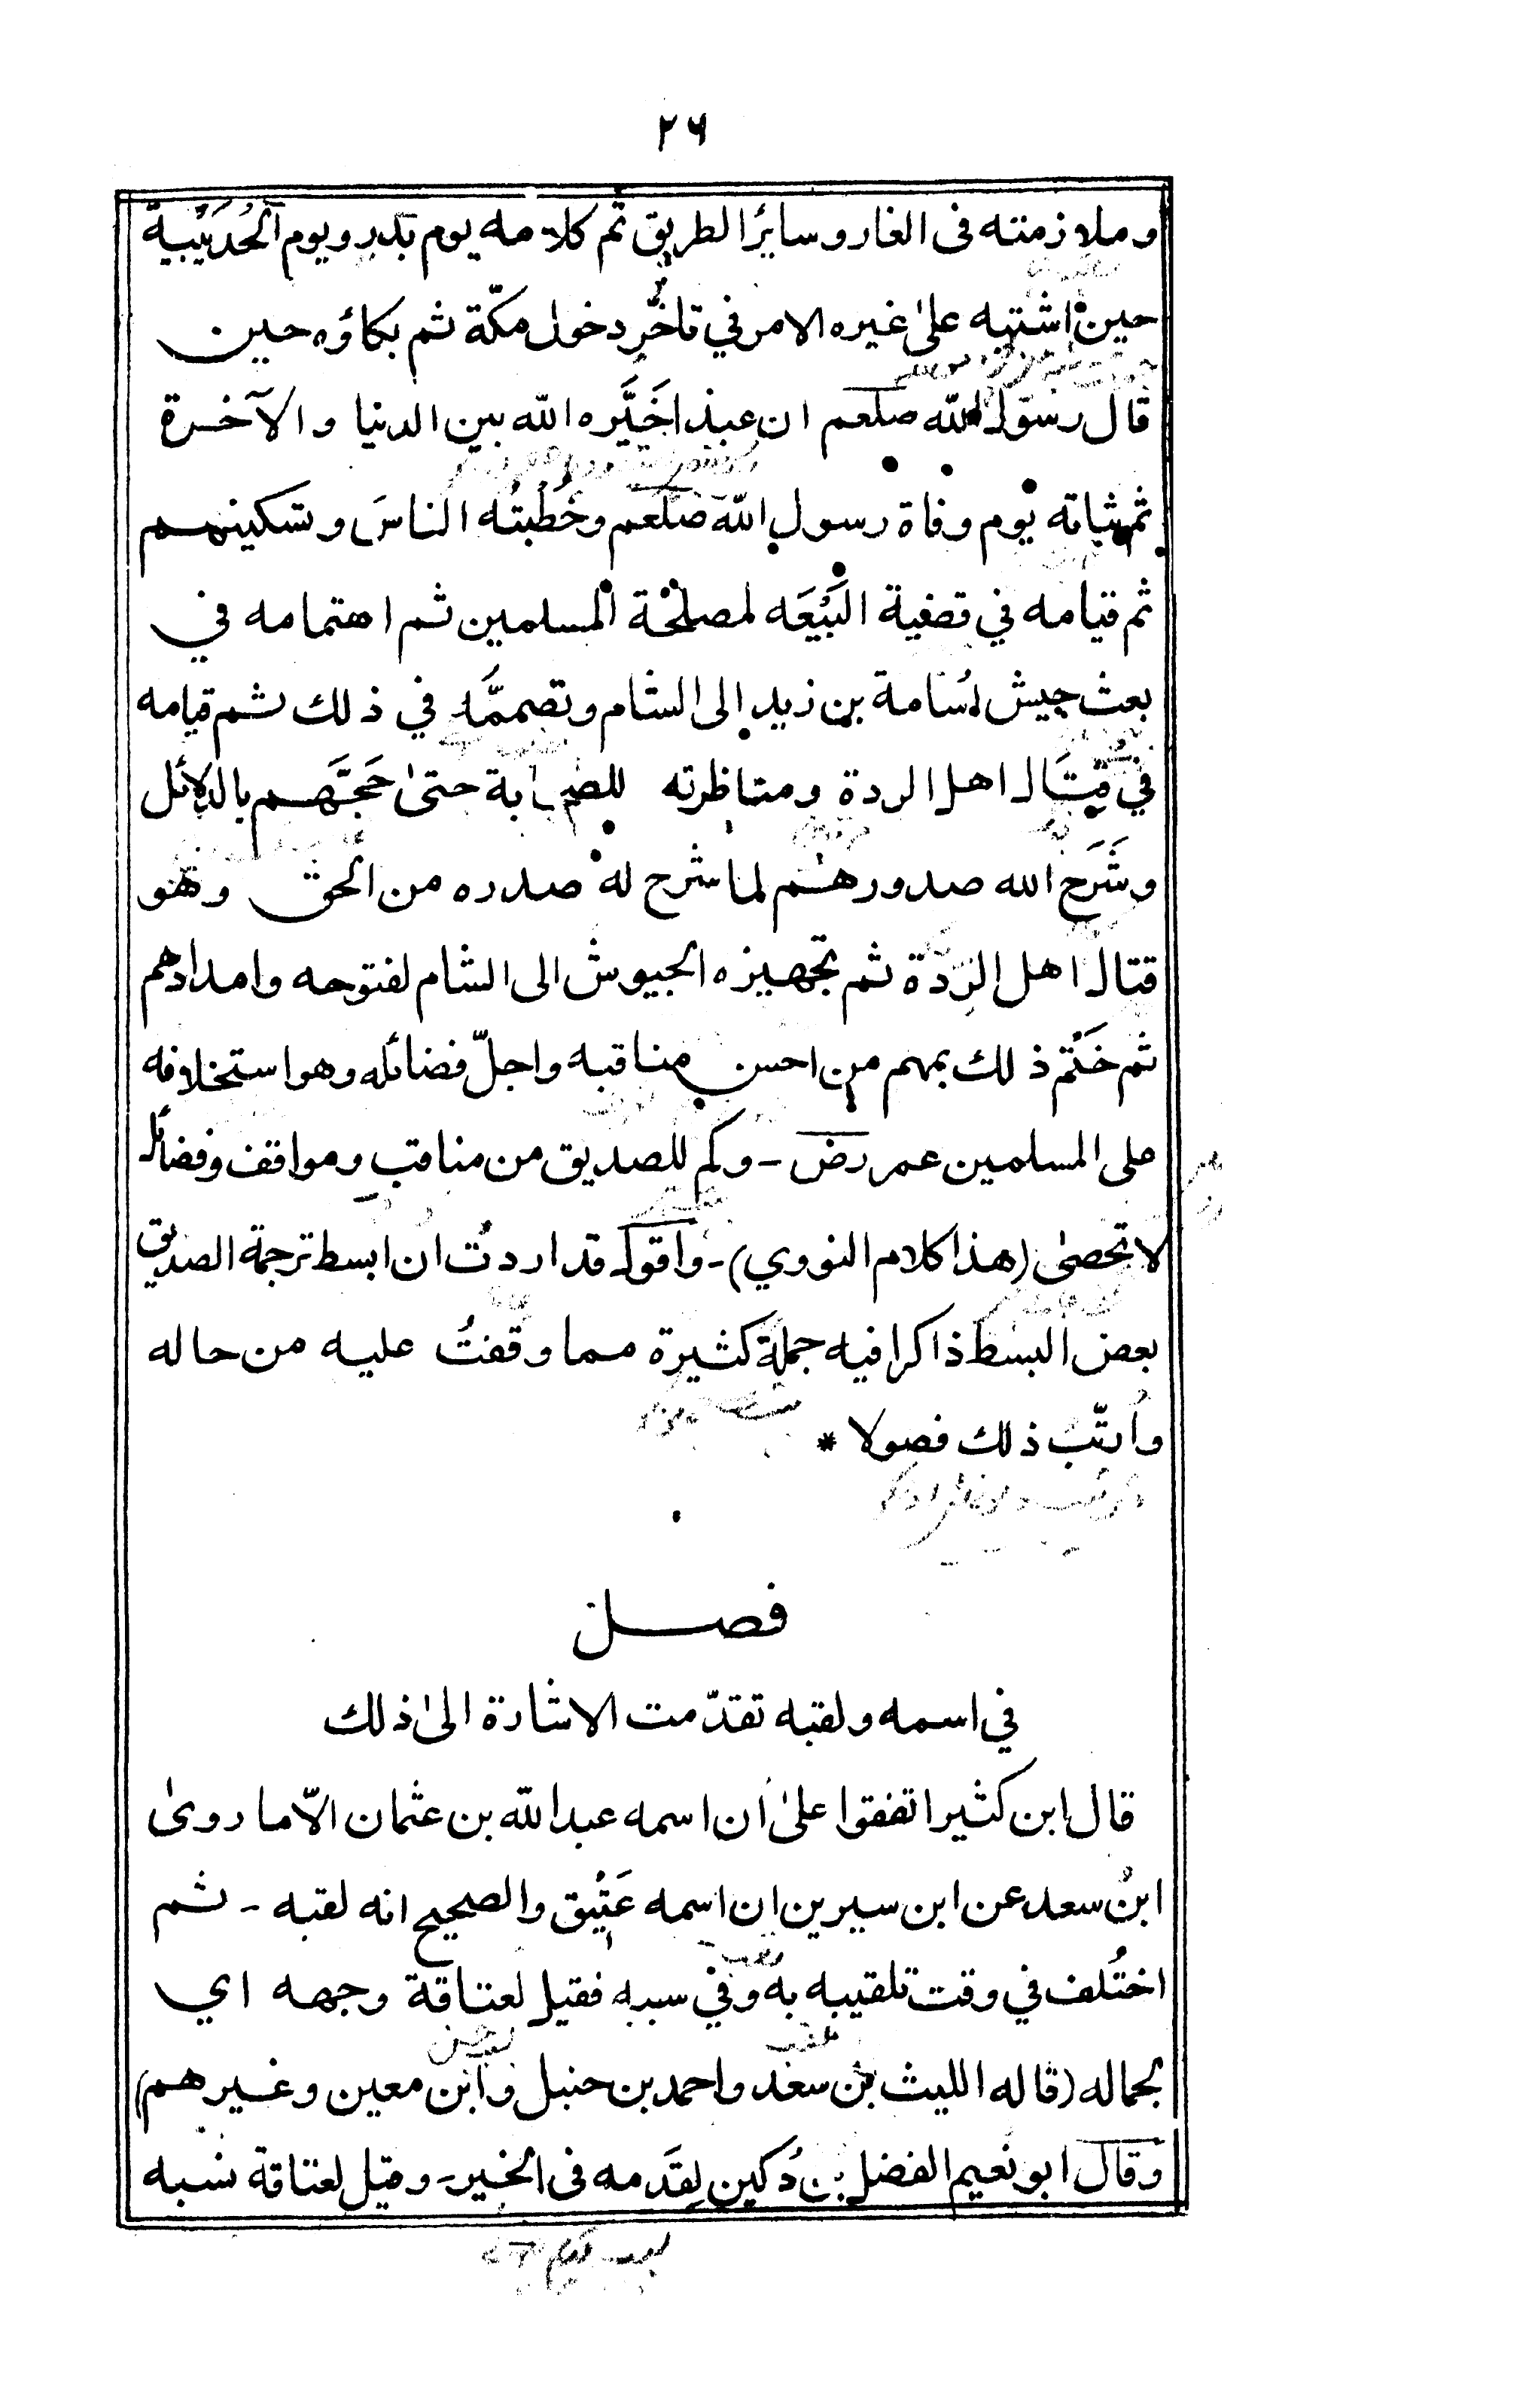 ٢٦
وملازمته فى الغار وسائر الطريق ثم كلامه يوم بَدر ويوم الحُدَيْبِية
حين اشتبه علىٰ غيره الامر في تاخّر دخول مكّة ثم بكاؤه حين
قال رسول الله صلعم ان عبدا خَيَّره الله بين الدنيا والآخرة
ثم ثباته يوم وفاة رسول الله صلعم وخُطبتُه الناسَ وتسكينهم
ثم قيامه في قضية البَيْعَه لمصلحة المسلمين ثم اهتمامه في
بعث جيش اُسامة بن زيد الى الشام وتصممَّه في ذلك ثم قيامه
في قِتَال اهل الردة ومناظرته للصحابة حتىٰ حَجَّهم بالدلائل
وشَرَح الله صدورهم لما شرح له صدره من الحق وهو
قتال اهل الرِدة ثم تجهيزه الجيوش الى الشام لفتوحه وامدادهم
ثم خَتَم ذلك بمهم من احسن مناقبه واجلّ فضائله وهو استخلافه
على المسلمين عمر رض - وكم للصديق من مناقب ومواقف وفضائل
لا تحصىٰ (هذا كلام النووي) - واقول قد اردتُ ان ابسط ترجمة الصديق
بعض البسط ذاكرا فيه جملة كثيرة مما وقفتُ عليه من حاله
واُرتّب ذلك فصولا *
فصل
في اسمه ولقبه تقدّمت الاشارة الىٰ ذلك
قال ابن كثير اتفقوا علىٰ ان اسمه عبد الله بن عثمان الّا ما روىٰ
ابنُ سعد عن ابن سيرين ان اسمه عَتِيق والصحيح انه لقبه - ثم
اختُلف في وقت تلقيبه به وفي سببه فقيل لعتاقة وجهه اي
لجماله (قاله الليث بن سعد واحمد بن حنبل وابن معين وغيرهم)
وقال ابو نعيم الفضل بن دُكين لِقَدمه فى الخير - وقيل لعتاقة نسبه